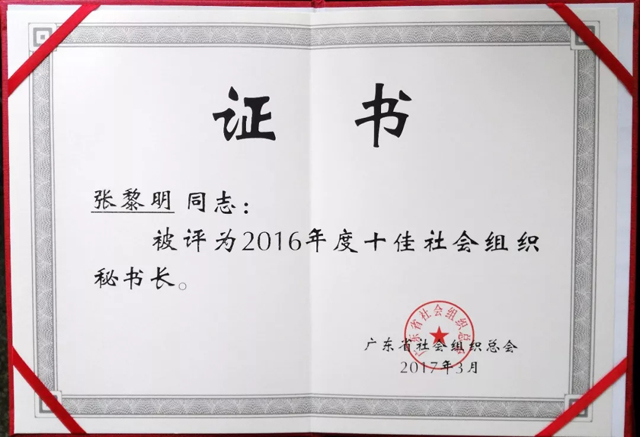 证书
张黎明 同志：
被评为2016年度十佳社会组织
秘书长。
广东省社会组织总会
广东省社会组织总会
2017年3月